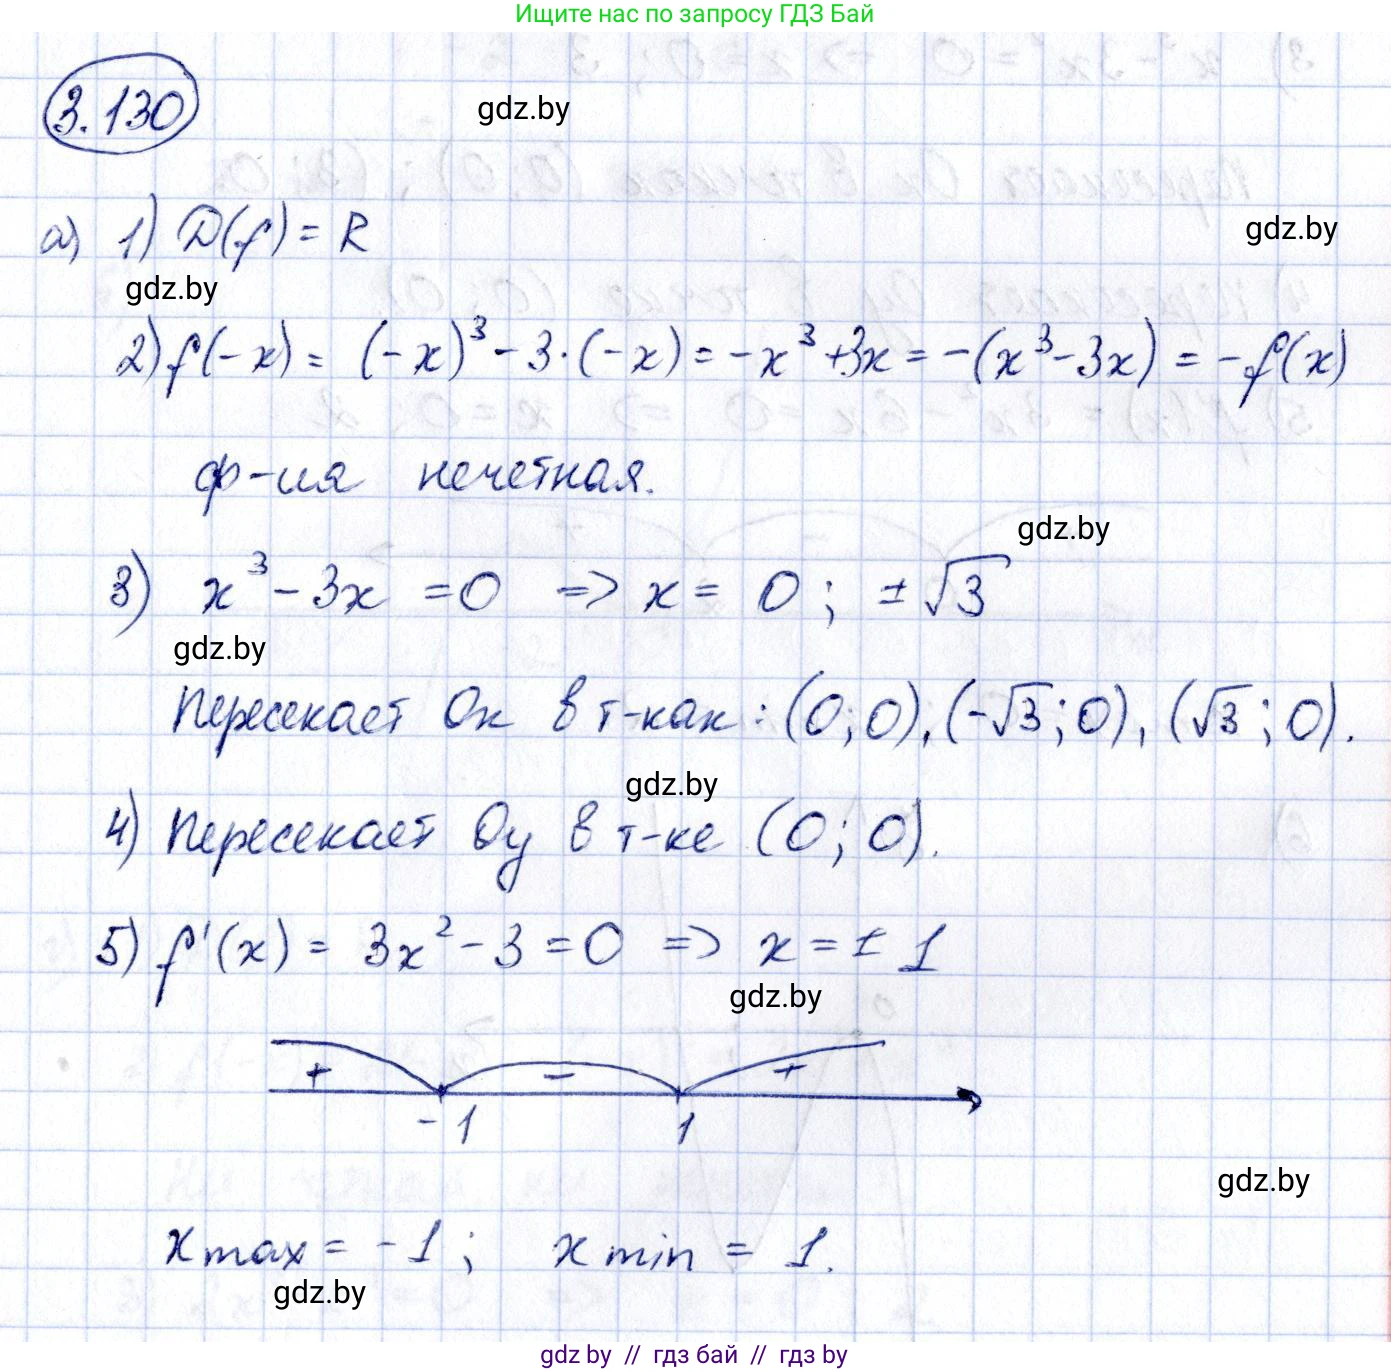 Ищите нас по запросу ГДЗ Бай
3.130
gdz.by
а) 1) D(f) = R
gdz.by
gdz.by
2) f(-x) = (-x)³ - 3·(-x) = -x³ + 3x = -(x³ - 3x) = -f(x)
ф-ия нечетная.
gdz.by
3) x³ - 3x = 0 => x = 0; ±√3
gdz.by
Пересекает Ox в т-ках: (0;0), (-√3;0), (√3;0).
gdz.by
4) Пересекает Oy в т-ке (0;0).
5) f'(x) = 3x² - 3 = 0 => x = ± 1
gdz.by
+ - +
-1 1
gdz.by
xmax = -1; xmin = 1.
gdz.by
gdz by // гдз бай // gdz by